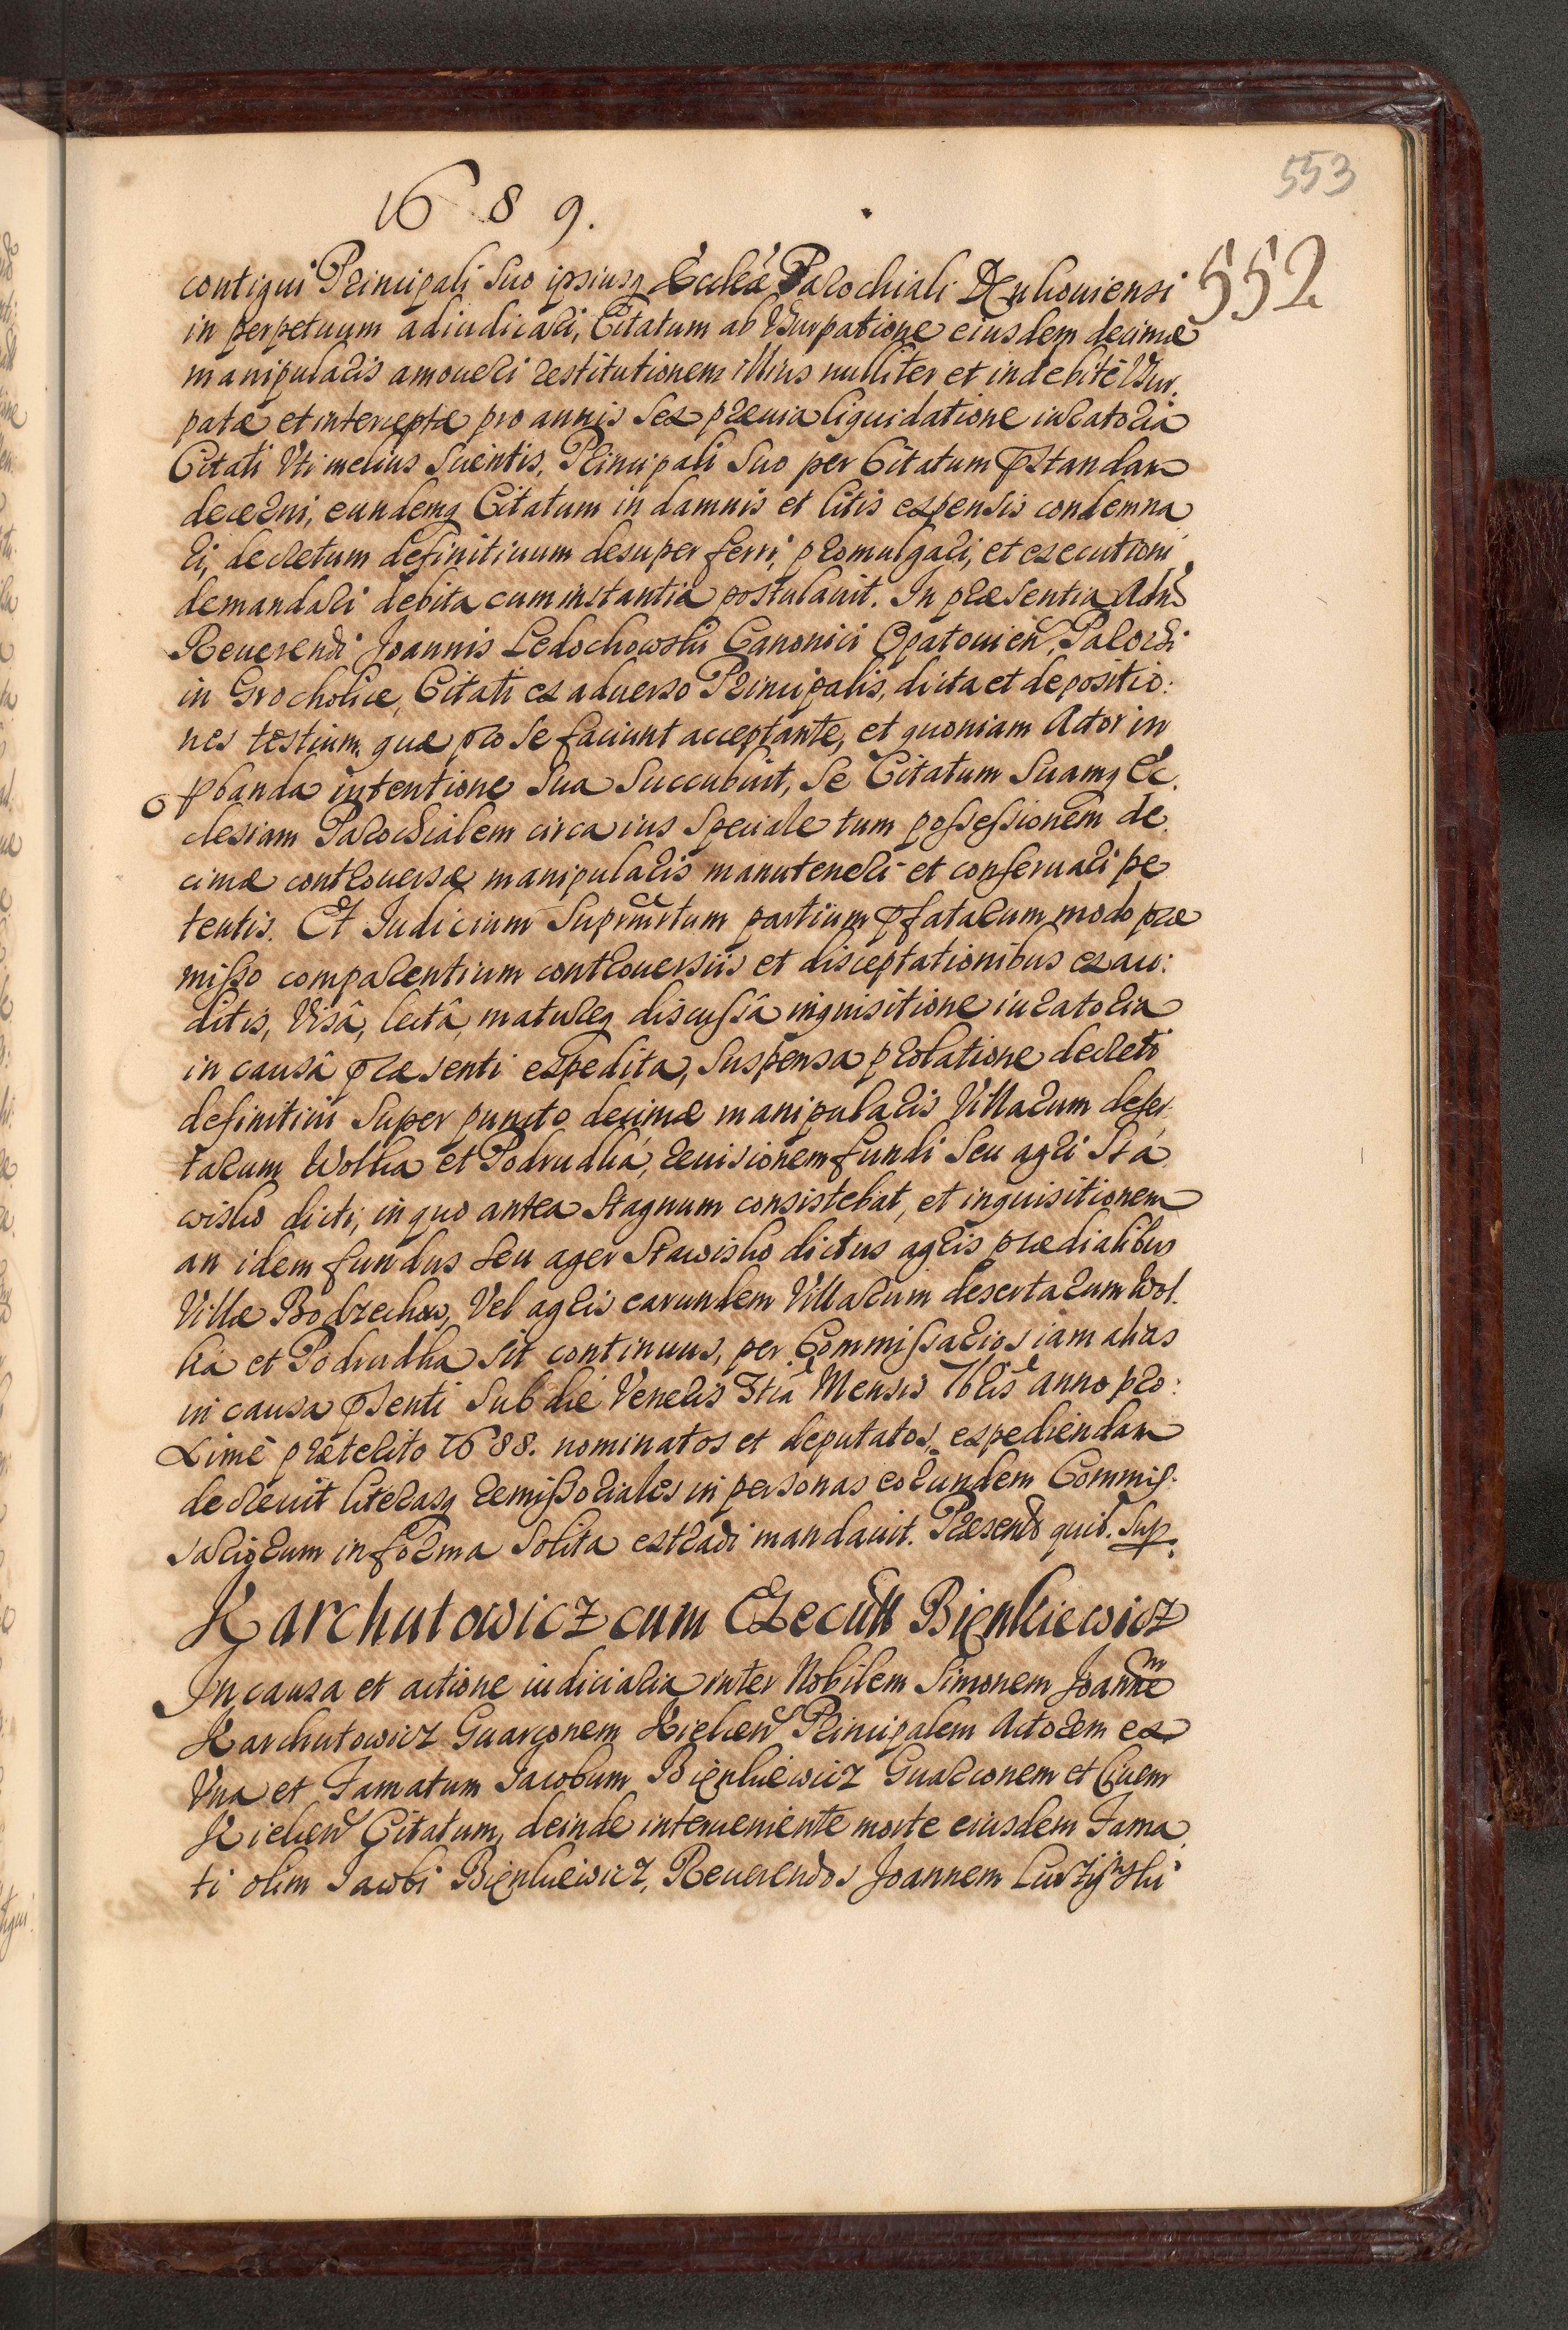 553
1689.
552
contigui Principali suo ipsiusq Eccleæ Parochiali Denkouiensi
in perpetuum adiudicari, Citatum ab Vsurpatione eiusdem decimæ
manipularis amoueri restitutionem illius nulliter et indebitè Vsur,
patæ et interceptæ pro annis sex præuia liquidatione iuratoria
Citati Vti melius scientis, Principali suo per Citatum pstandam
decerni, eundemq Citatum in damnis et litis expensis condemna
ri, decretum definitiuum desuper ferri, promulgari, et executioni
demandari debita cum instantia postulauit. In præsentia Adm
Reuerendi Joannis Ledochowski Canonici Opatouien, Parochi
in Grocholice, Citati ex aduerso Principalis, dicta et depositio:
nes testium, quæ pro se faciunt acceptante, et quoniam Actor in
pbanda intentione sua succubuit, se Citatum suamq Ec,
clesiam Parochialem circa ius speciale tum possessionem de,
cimæ controuersæ manipularis manuteneri et conseruari pe
tentis. Et Iudicium partium pfatarum modo præ
misso comparentium controuersiis et disceptationibus exau:
ditis, Visâ, lectâ, matureq discussâ inquisitione iuratoria
in causâ præsenti expedita, suspensa prolatione decreti
definitiui super puncto decimæ manipularis Villarum deser,
tarum Wolka et Podrudka, reuisionem fundi seu agri Sta
wisko dicti, in quo antea stagnum consistebat, et inquisitionem
an idem fundus seu ager Stawisko dictus agris prædialibus
Villæ Bodzechow, Vel agris earundem Villarum desertarum Wol,
ka et Podrudka sit continuus, per Commissarios iam alias
in causa psenti sub die Veneris 3tia Mensis 7bris anno pro:
ximè præterito 1688. nominatos et deputatos, expediendam
decreuit literasq remissoriales in personas eorundem Commis,
sariorum in forma solita extradi mandauit. Præsenti quib. Sup.
Karchutowicz cum Execut Bięnkiewicz
In causa et actione iudiciaria inter Nobilem Simonem Joanne
Karchutowicz Guarconem Kielcen Principalem Actorem ex
Vna et Famatum Jacobum Bięnkiewicz Guarconem et Ciuem
Kielcen Citatum, deinde interueniente morte eiusdem Fama,
ti olim Jacobi Bięnkiewicz, Reuerendos Joannem